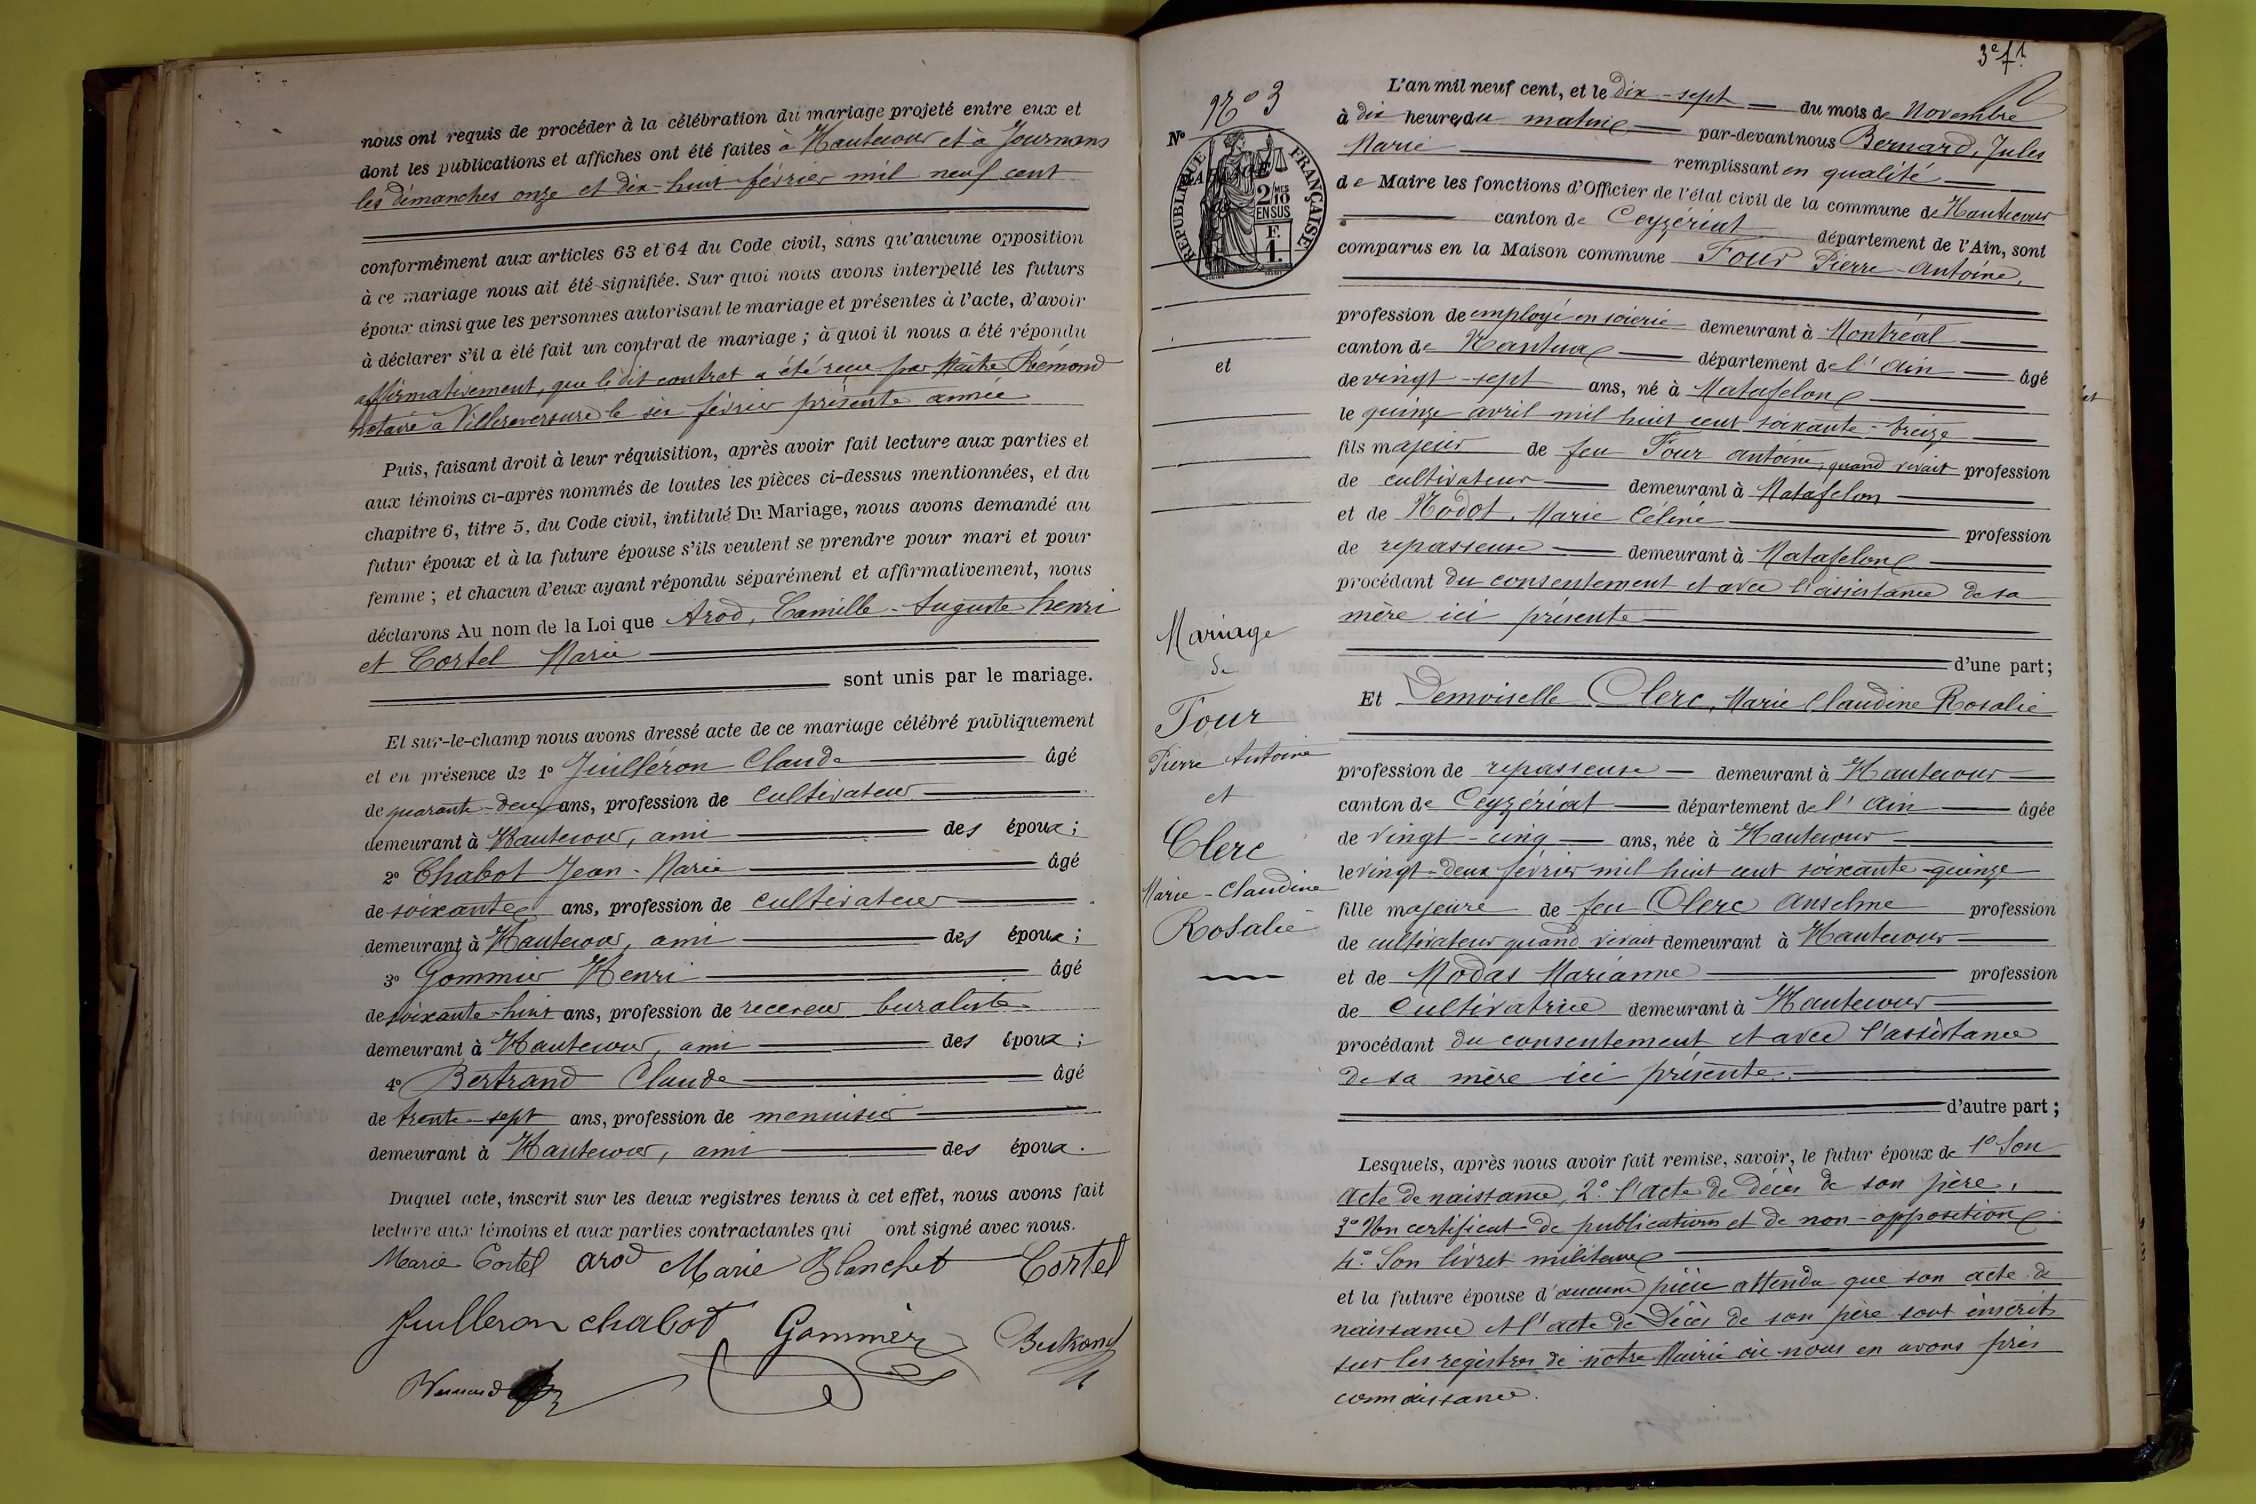 nous ont requis de procéder à la célébration du mariage projeté entre eux et
dont les publications et affiches ont été faites à Hautecour et à Journans
les dimanches onze et dix-huit février mil neuf cent
conformément aux articles 63 et 64 du Code civil, sans qu'aucune opposition
à ce mariage nous ait été signifiée. Sur quoi nous avons interpellé les futurs
époux ainsi que les personnes autorisant le mariage et présentes à l'acte, d'avoir
à déclarer s'il a été fait un contrat de mariage ; à quoi il nous a été répondu
affirmativement, que le dit contrat a été recu par Maître Rémond
notaire à Villereversure le six février présente année
Puis, faisant droit à leur réquisition, après avoir fait lecture aux parties et
aux témoins ci-après nommés de toutes les pièces ci-dessus mentionnées, et du
chapitre 6, titre 5, du Code civil, intitulé Du Mariage, nous avons demandé au
futur époux et à la future épouse s'ils veulent se prendre pour mari et pour
femme ; et chacun d'eux ayant répondu séparément et affirmativement, nous
déclarons Au nom de la Loi que Arod, Camille-Auguste henri
et Cortel Marie
sont unis par le mariage.
Et sur-le-champ nous avons dressé acte de ce mariage célébré publiquement
et en présence de 1º Juilléron Claude âgé
de quarante-deux ans, profession de cultivateur
demeurant à Hautecour, ami des époux ;
2º Chabot Jean-Marie âgé
de soixante ans, profession de cultivateur
demeurant à Hautecour, ami des époux ;
3º Gommier Henri âgé
de soixante-huit ans, profession de receveur buraliste
demeurant à Hautecour, ami des époux ;
4º Bertrand Claude âgé
de trente-sept ans, profession de menuisier
demeurant à Hautecour, ami des époux.
Duquel acte, inscrit sur les deux registres tenus à cet effet, nous avons fait
lecture aux témoins et aux parties contractantes qui ont signé avec nous.
Marie Cortel arod Marie Blanchet Cortel
Juilleron chabot Gommier Bertrand
Bernard
3e ft
Nº 3
Nº
REPUBLIQUE FRANÇAISE
2/10 EN SUS
F. 1.
et
Mariage
de
Four
Pierre Antoine
et
Clerc
Marie-Claudine
Rosalie
L'an mil neuf cent, et le dix-sept du mois de Novembre
à dix heures du matin par-devant nous Bernard, Jules
Marie remplissant en qualité
de Maire les fonctions d'Officier de l'état civil de la commune de Hautecour
canton de Ceyzériat département de l'Ain, sont
comparus en la Maison commune Four Pierre-Antoine,
profession de employé en soierie demeurant à Montréal
canton de Nantua département de l'Ain âgé
de vingt-sept ans, né à Matafelon
le quinze avril mil huit cent soixante-treize
fils majeur de feu Four Antoine, quand vivait profession
de cultivateur demeurant à Matafelon
et de Nodot, Marie Céline profession
de repasseuse demeurant à Matafelon
procédant du consentement et avec l'assistance de sa
mère ici présente
d'une part ;
Et Demoiselle Clerc, Marie Claudine Rosalie
profession de repasseuse demeurant à Hautecour
canton de Ceyzériat département de l'Ain âgée
de vingt-cinq ans, née à Hautecour
le vingt-deux février mil huit cent soixante-quinze
fille majeure de feu Clerc Anselme profession
de cultivateur quand vivait demeurant à Hautecour
et de Modas Marianne profession
de Cultivatrice demeurant à Hautecour
procédant du consentement et avec l'assistance
de sa mère ici présente.
d'autre part ;
Lesquels, après nous avoir fait remise, savoir, le futur époux de 1º Son
acte de naissance, 2º l'acte de décès de son père,
3º Un certificat de publication et de non-opposition
4º Son livret militaire
et la future épouse d'aucune pièce attendu que son acte de
naissance et l'acte de Décès de son père sont inscrits
sur les registres de notre Mairie où nous en avons pris
connaissance.